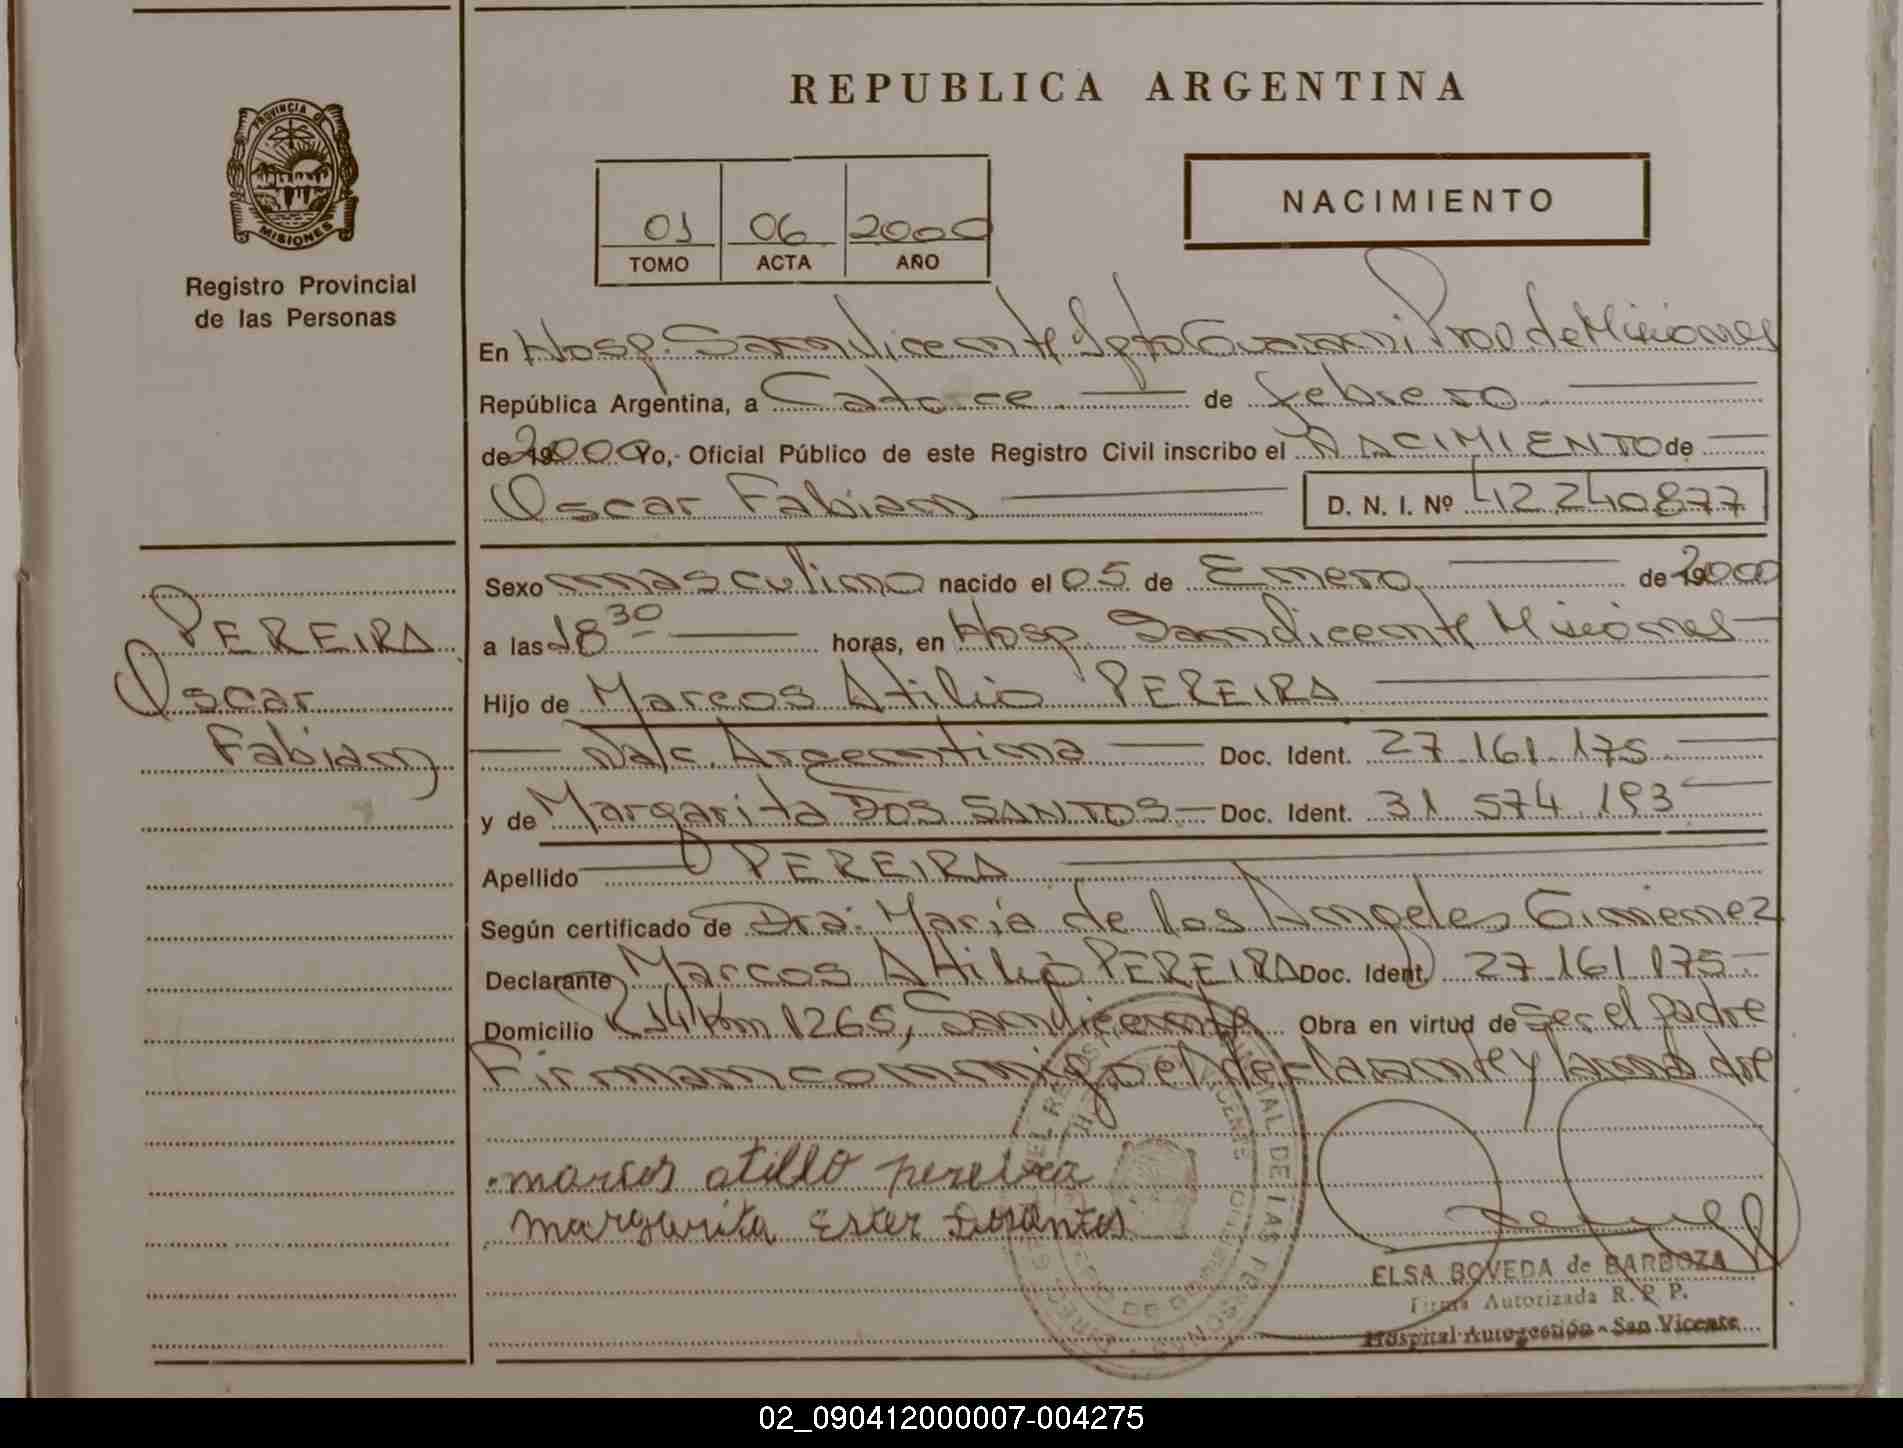 REPUBLICA ARGENTINA
PROVINCIA DE
MISIONES
Registro Provincial
de las Personas
01 06 2000
TOMO ACTA AÑO
NACIMIENTO
En Hosp. San Vicente Dpto Guarani Prov de Misiones
República Argentina, a Catorce de febrero
de 2000 Yo,- Oficial Público de este Registro Civil inscribo el NACIMIENTO de
Oscar Fabian D. N. I. Nº 42.240.877
PEREIRA
Oscar
Fabian
Sexo masculino nacido el 05 de Enero de 2000
a las 18 30 horas, en Hosp. San Vicente Misiones
Hijo de Marcos Atilio PEREIRA
Nac. Argentina Doc. Ident. 27.161.175
y de Margarita DOS SANTOS Doc. Ident. 31 574 193
Apellido PEREIRA
Según certificado de Dra: María de los Angeles Gimenez
Declarante Marcos Atilio PEREIRA Doc. Ident. 27 161 175
Domicilio R 14 Km 1265, San Vicente Obra en virtud de Ser el padre
Firman conmigo el declarante y la madre
marcos atilio pereira
margarita Ester
ELSA BOVEDA de BARBOZA
Firma Autorizada R. P. P.
Hospital Autogestión - San Vicente
02_090412000007-004275